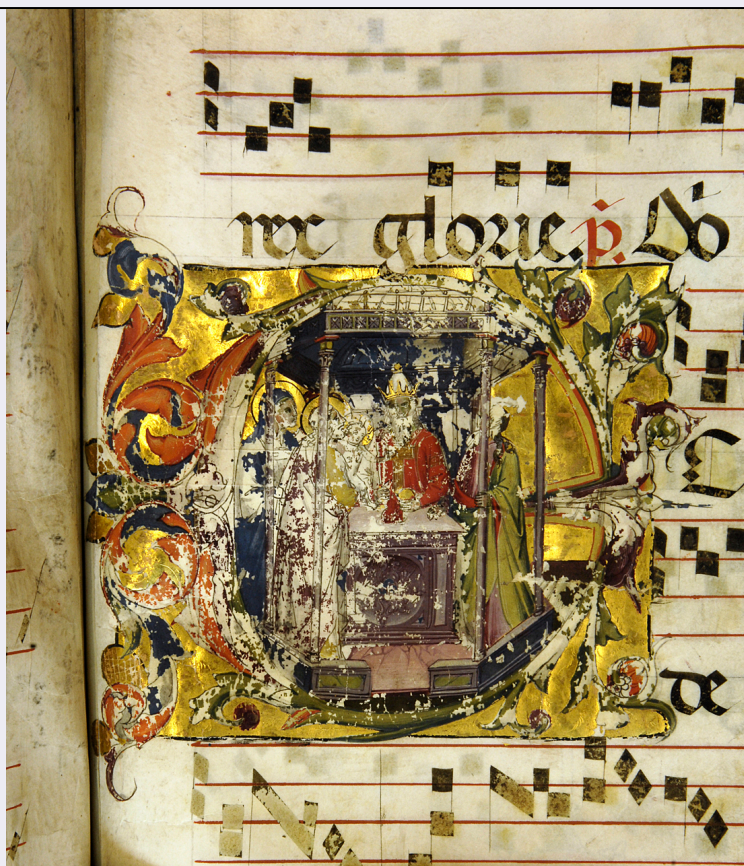 rex glorie. p̄. Do
E C
de